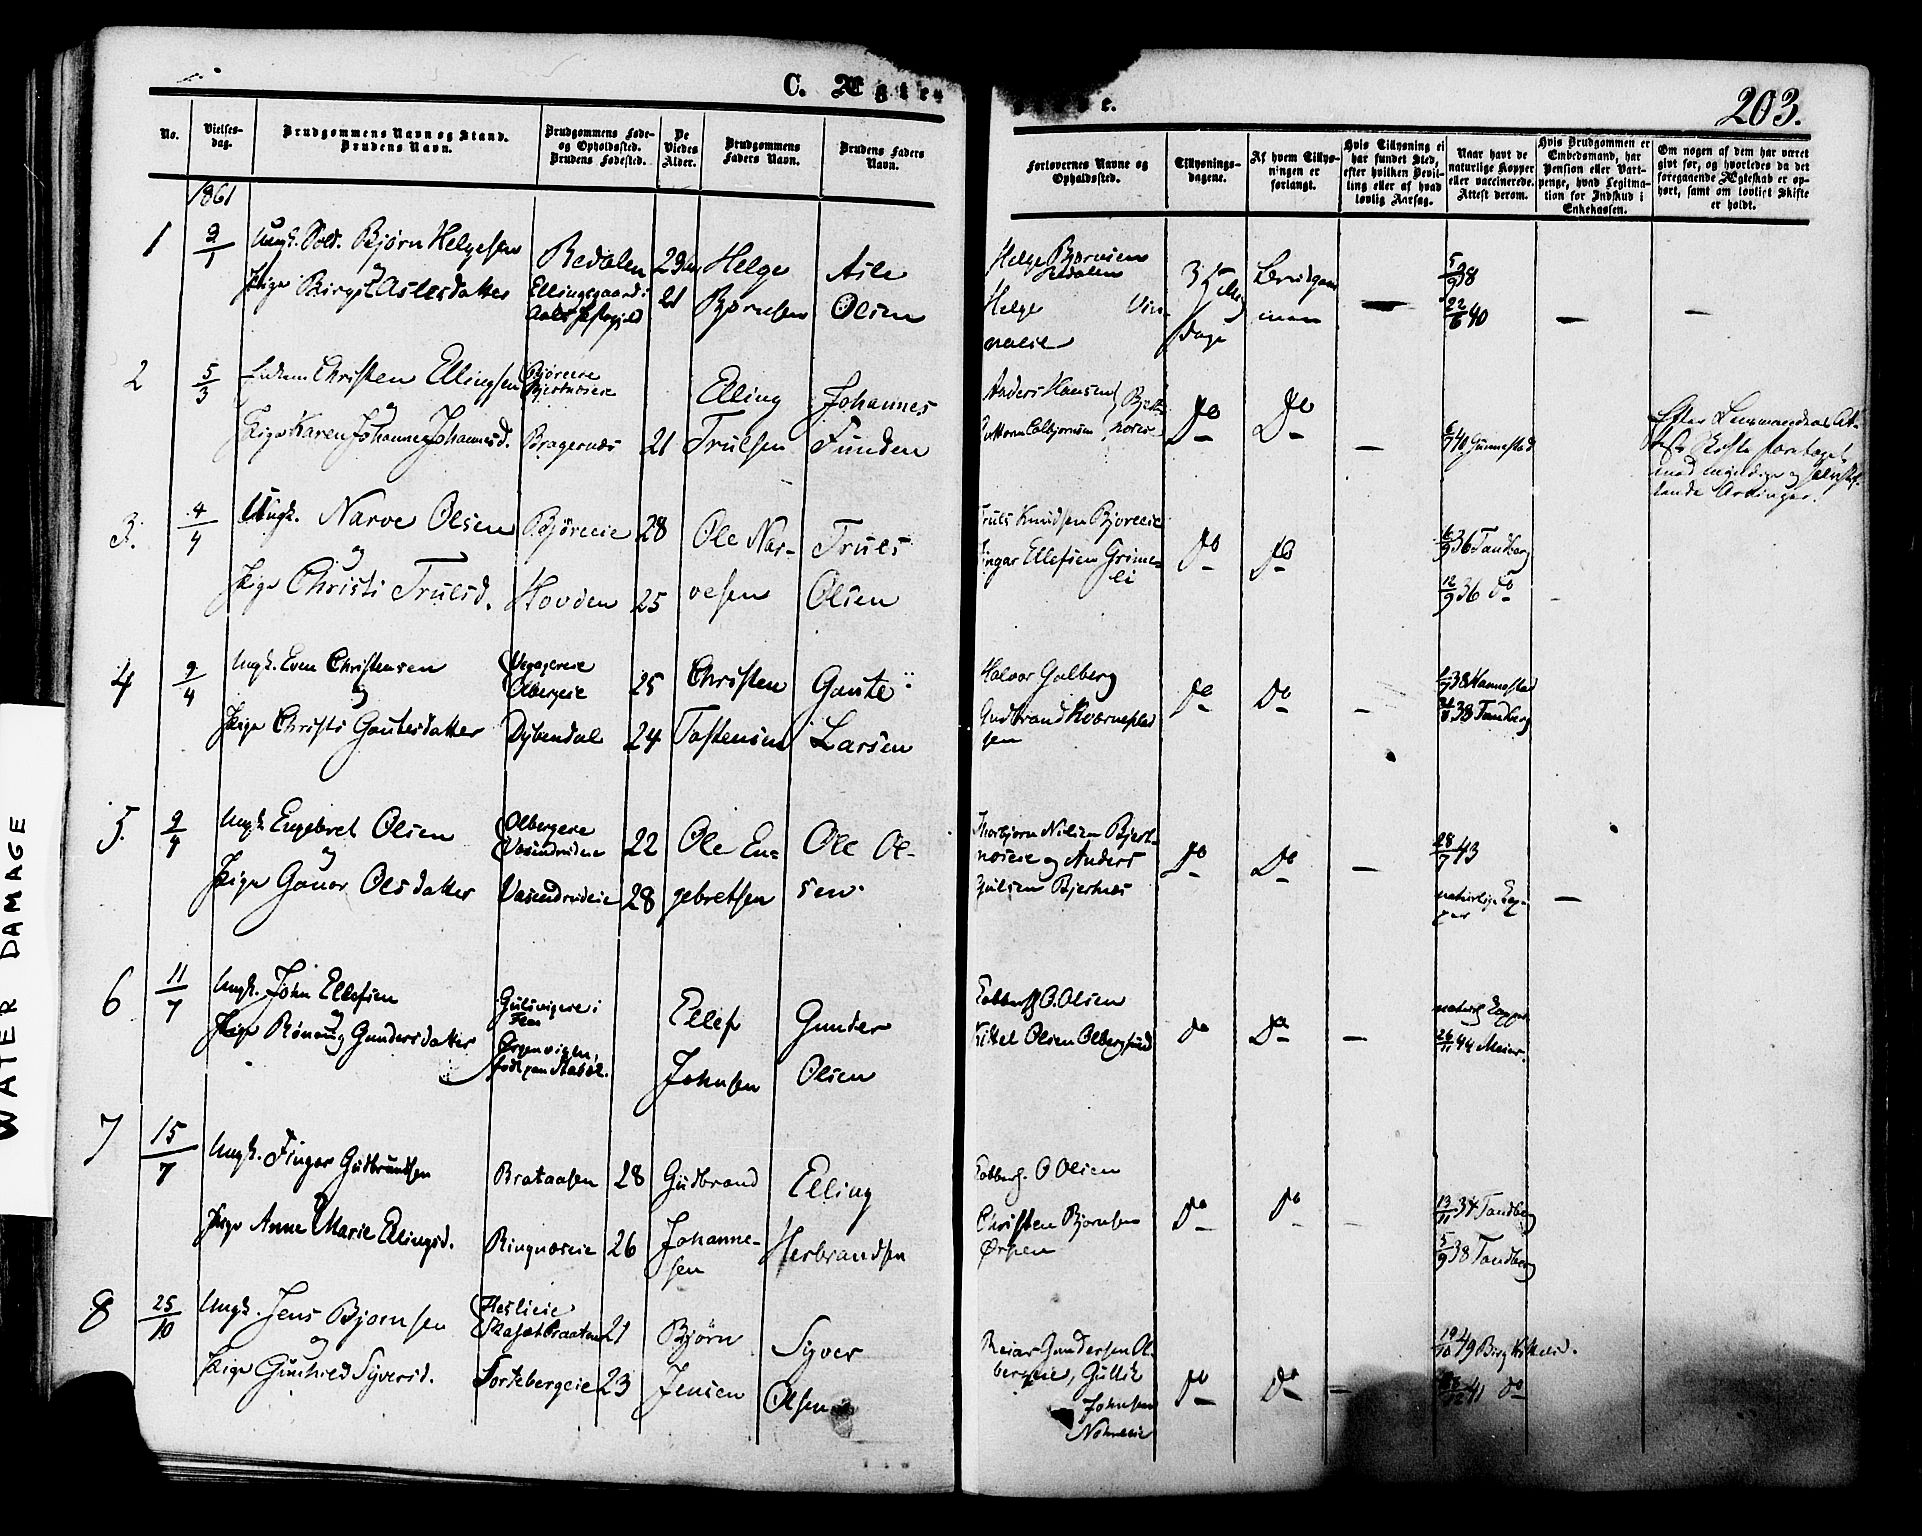 C. Ægte
203.
No.
Vielses-
dag.
Brudgommens Navn og Stand.
Brudens Navn.
Brudgommens Føde-
og Opholdssted.
Brudens Fødested.
De
Viedes
Alder.
Brudgommens
Faders Navn.
Brudens Faders
Navn.
Forlovernes Navne og
Opholdssted.
Tillysnings-
dagene.
Af hvem Tillys-
ningen er
forlangt.
Hvis Tillysning ei
har fundet Sted,
efter hvilken Bevil-
ling eller af hvad
lovlig Aarsag.
Naar havt de
naturlige Kopper
eller vaccinerede.
Attest derom.
Hvis Brudgommen er
Embedsmand, har
Pension eller Vart-
penge, hvad Legitma-
tion for Indskud i
Enkekassen.
Om nogen af dem har været
givt før, og hvorledes da det
foregaaende Ægteskab er op-
hørt, samt om lovligt Skifte
er holdt.
1861
1
Ungk. Sold. Bjørn Helgesen
og
Pige Birgit Aslesdatter
Bedalen
Ellingsgaard i
Aals Præstegjeld
21
Helge
Bjørnsen
Asle
Olsen
Helge Bjørnsen
Helge
3
dage
5/9 38
22/6 40
2
5/3
Christen Ellingsen
og
Pige Karen Johanne Johannesd.
Bjøreeie
Bragernæs
21
Elling
Trulsen
Johannes
Funden
Anders Hansen
Do
Do
40 Gunnestad
3.
4/4
Ungk. Narve Olsen
og
Pige Christi Trulsd.
Bjøreeie
Hovden
28
25
Ole Nar-
vesen
Truls
Olsen
Truls Knudsen Bjøreeie
Fingar Ellefsen Grime-
li
Do
Do
6/9 36 Tandberg
12/9 36 Do
4
9/4
Ungk. Even Christensen
og
Pige Christi Gautesdatter
Olbergeie
Dybendal
25
24
Christen
Tostensen
Gaute
Larsen
Halvor Gulberg
Gudbrand Kværneplad
sen
Do
Do
38 Hannestad
38 Tandberg
5.
9/4
Ungk Engebret Olsen
og
Pige Gunor Olsdatter
Olbergeie
Vasendrudeie
Vasendrudeie
22
28
Ole En-
gebretsen
Ole Ol-
sen
Thorbjørn Nilsen Bjert-
næseie og Anders
Bjertnæs
Do
Do
28/7 43
naturlige Kop-
per
6
11/7
Ungk. John Ellefsen
og
Pige Rønnaug Gundersdatter
Gulsvigeie i
Flaa
Ørgenvigen,
Ellef
Johnsen
Gunder
Olsen
O. Olsen
Kittel Olsen Olbergsund
Do
Do
naturlig Kopper
26/11 44 Meier.
7
15/7
Ungk. Fingar Gudbrandsen
og
Pige Anne Marie Ellingsd.
Brataasen
Ringnæseie
28
26
Gudbrand
Johanne-
sen
Elling
Herbrandsen
O Olsen
Christen Bjørnsen
Ørpen
Do
Do
13/11 34 Tandberg
5/9 38 Tandberg
8
25/10
Ungk. Jens Bjørnsen
og
Pige Gunhild Syversd.
Heslieie
Skafsetbraaten
Sortebergeie
21
23
Bjørn
Jensen
Syver
Olsen
Reiar Gundersen Ol-
bergeie, Gullik
Johnsen
Do
Do
19/10 49
41 Do
WATER DAMAGE